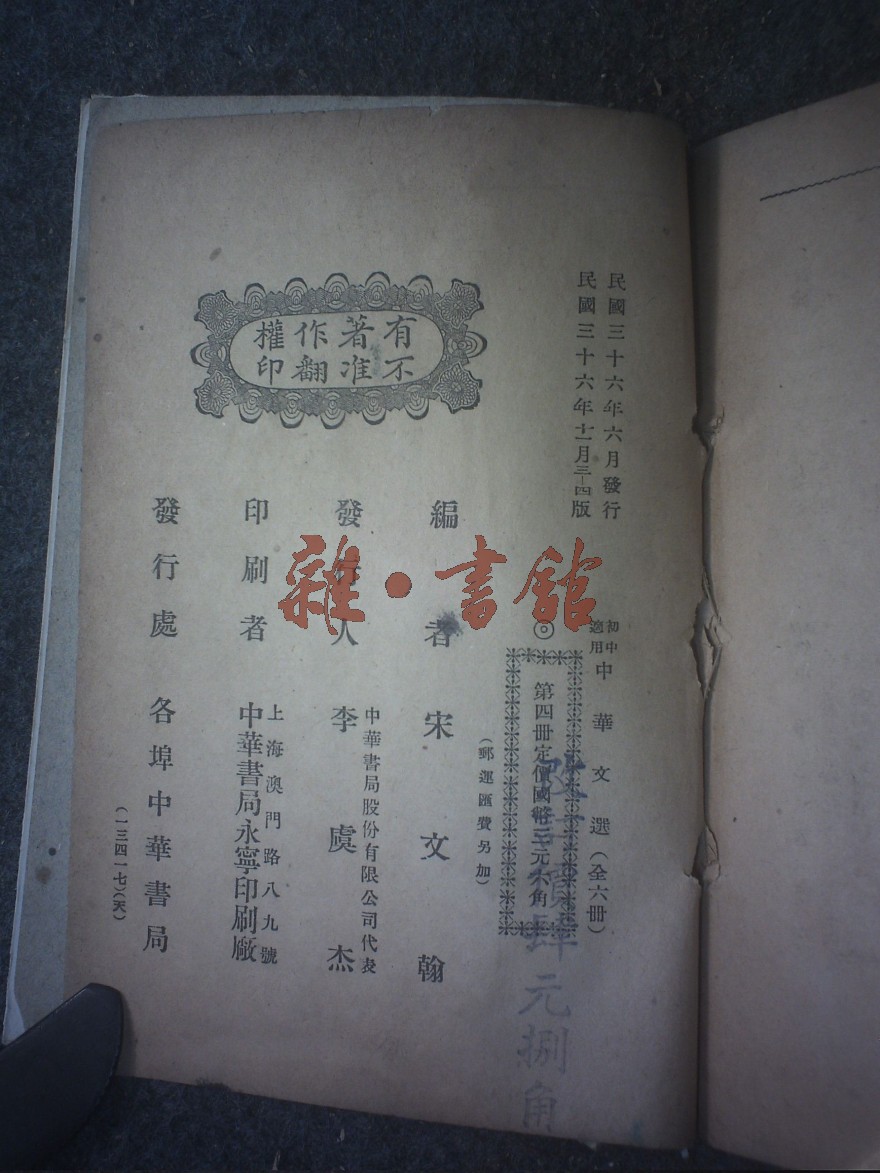 民國三十六年六月發行
民國三十六年十一月三—四版
初中適用 中華文選（全六冊）
◎第四冊定價國幣三元六角
（郵運匯費另加）
改價肆元捌角
有不著准作翻權印
編者 宋文翰
發行人 李虞杰
中華書局股份有限公司代表
印刷者
上海澳門路八九號
中華書局永寧印刷廠
發行處 各埠中華書局
（一三四一七）（天）
雜·書館